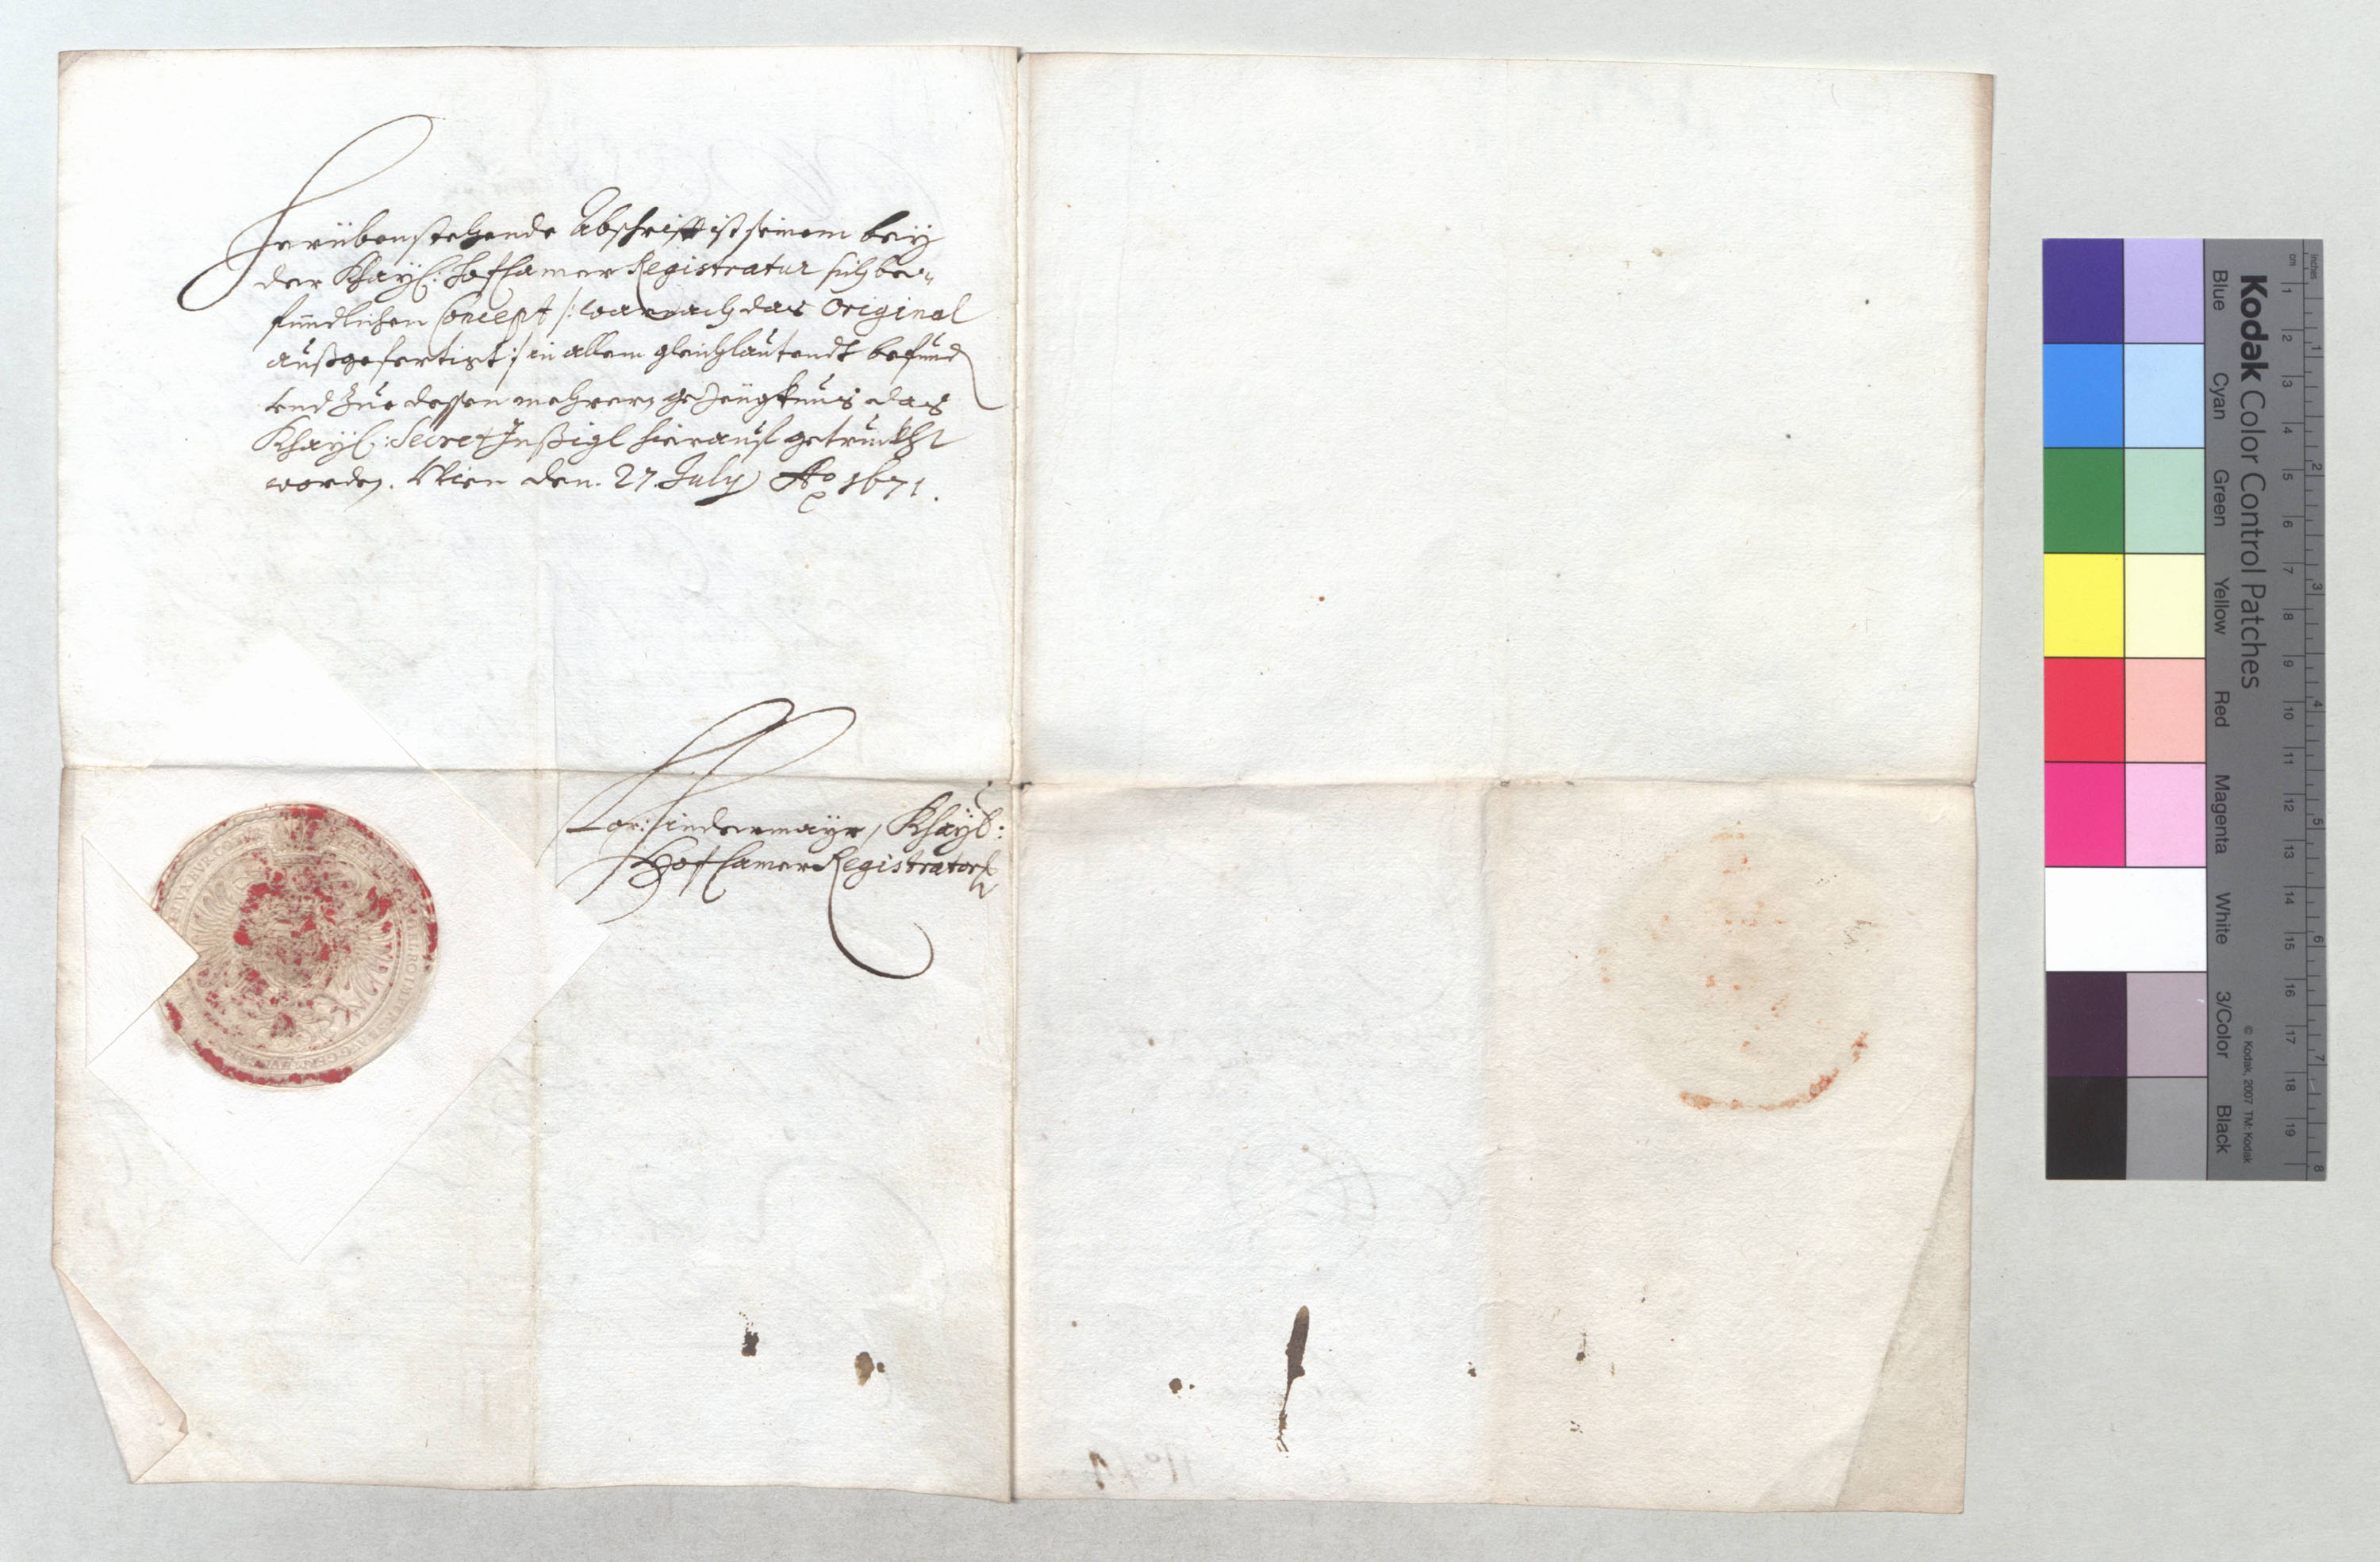 Herübenstehende Abschrifft ist seinem bey
der Khayl: HofCamer Registratur sich be„
findlichen Concept /: warnach das Original
außgefertigt :/ in allem gleichlautendt befund
und zue dessen mehrern gezeugknus das
Khayl: Secret Insigl hierauf getruckht
worden. Wien den 27 July Ao 1671.
Lor: Hindermayr, Khayl:
Hof Camer Registrator
Kodak Color Control Patches
Blue Cyan Green Yellow Red Magenta White 3/Color Black
© Kodak, 2007 TM: Kodak
cm 1 2 3 4 5 6 7 8 9 10 11 12 13 14 15 16 17 18 19
inches 1 2 3 4 5 6 7 8